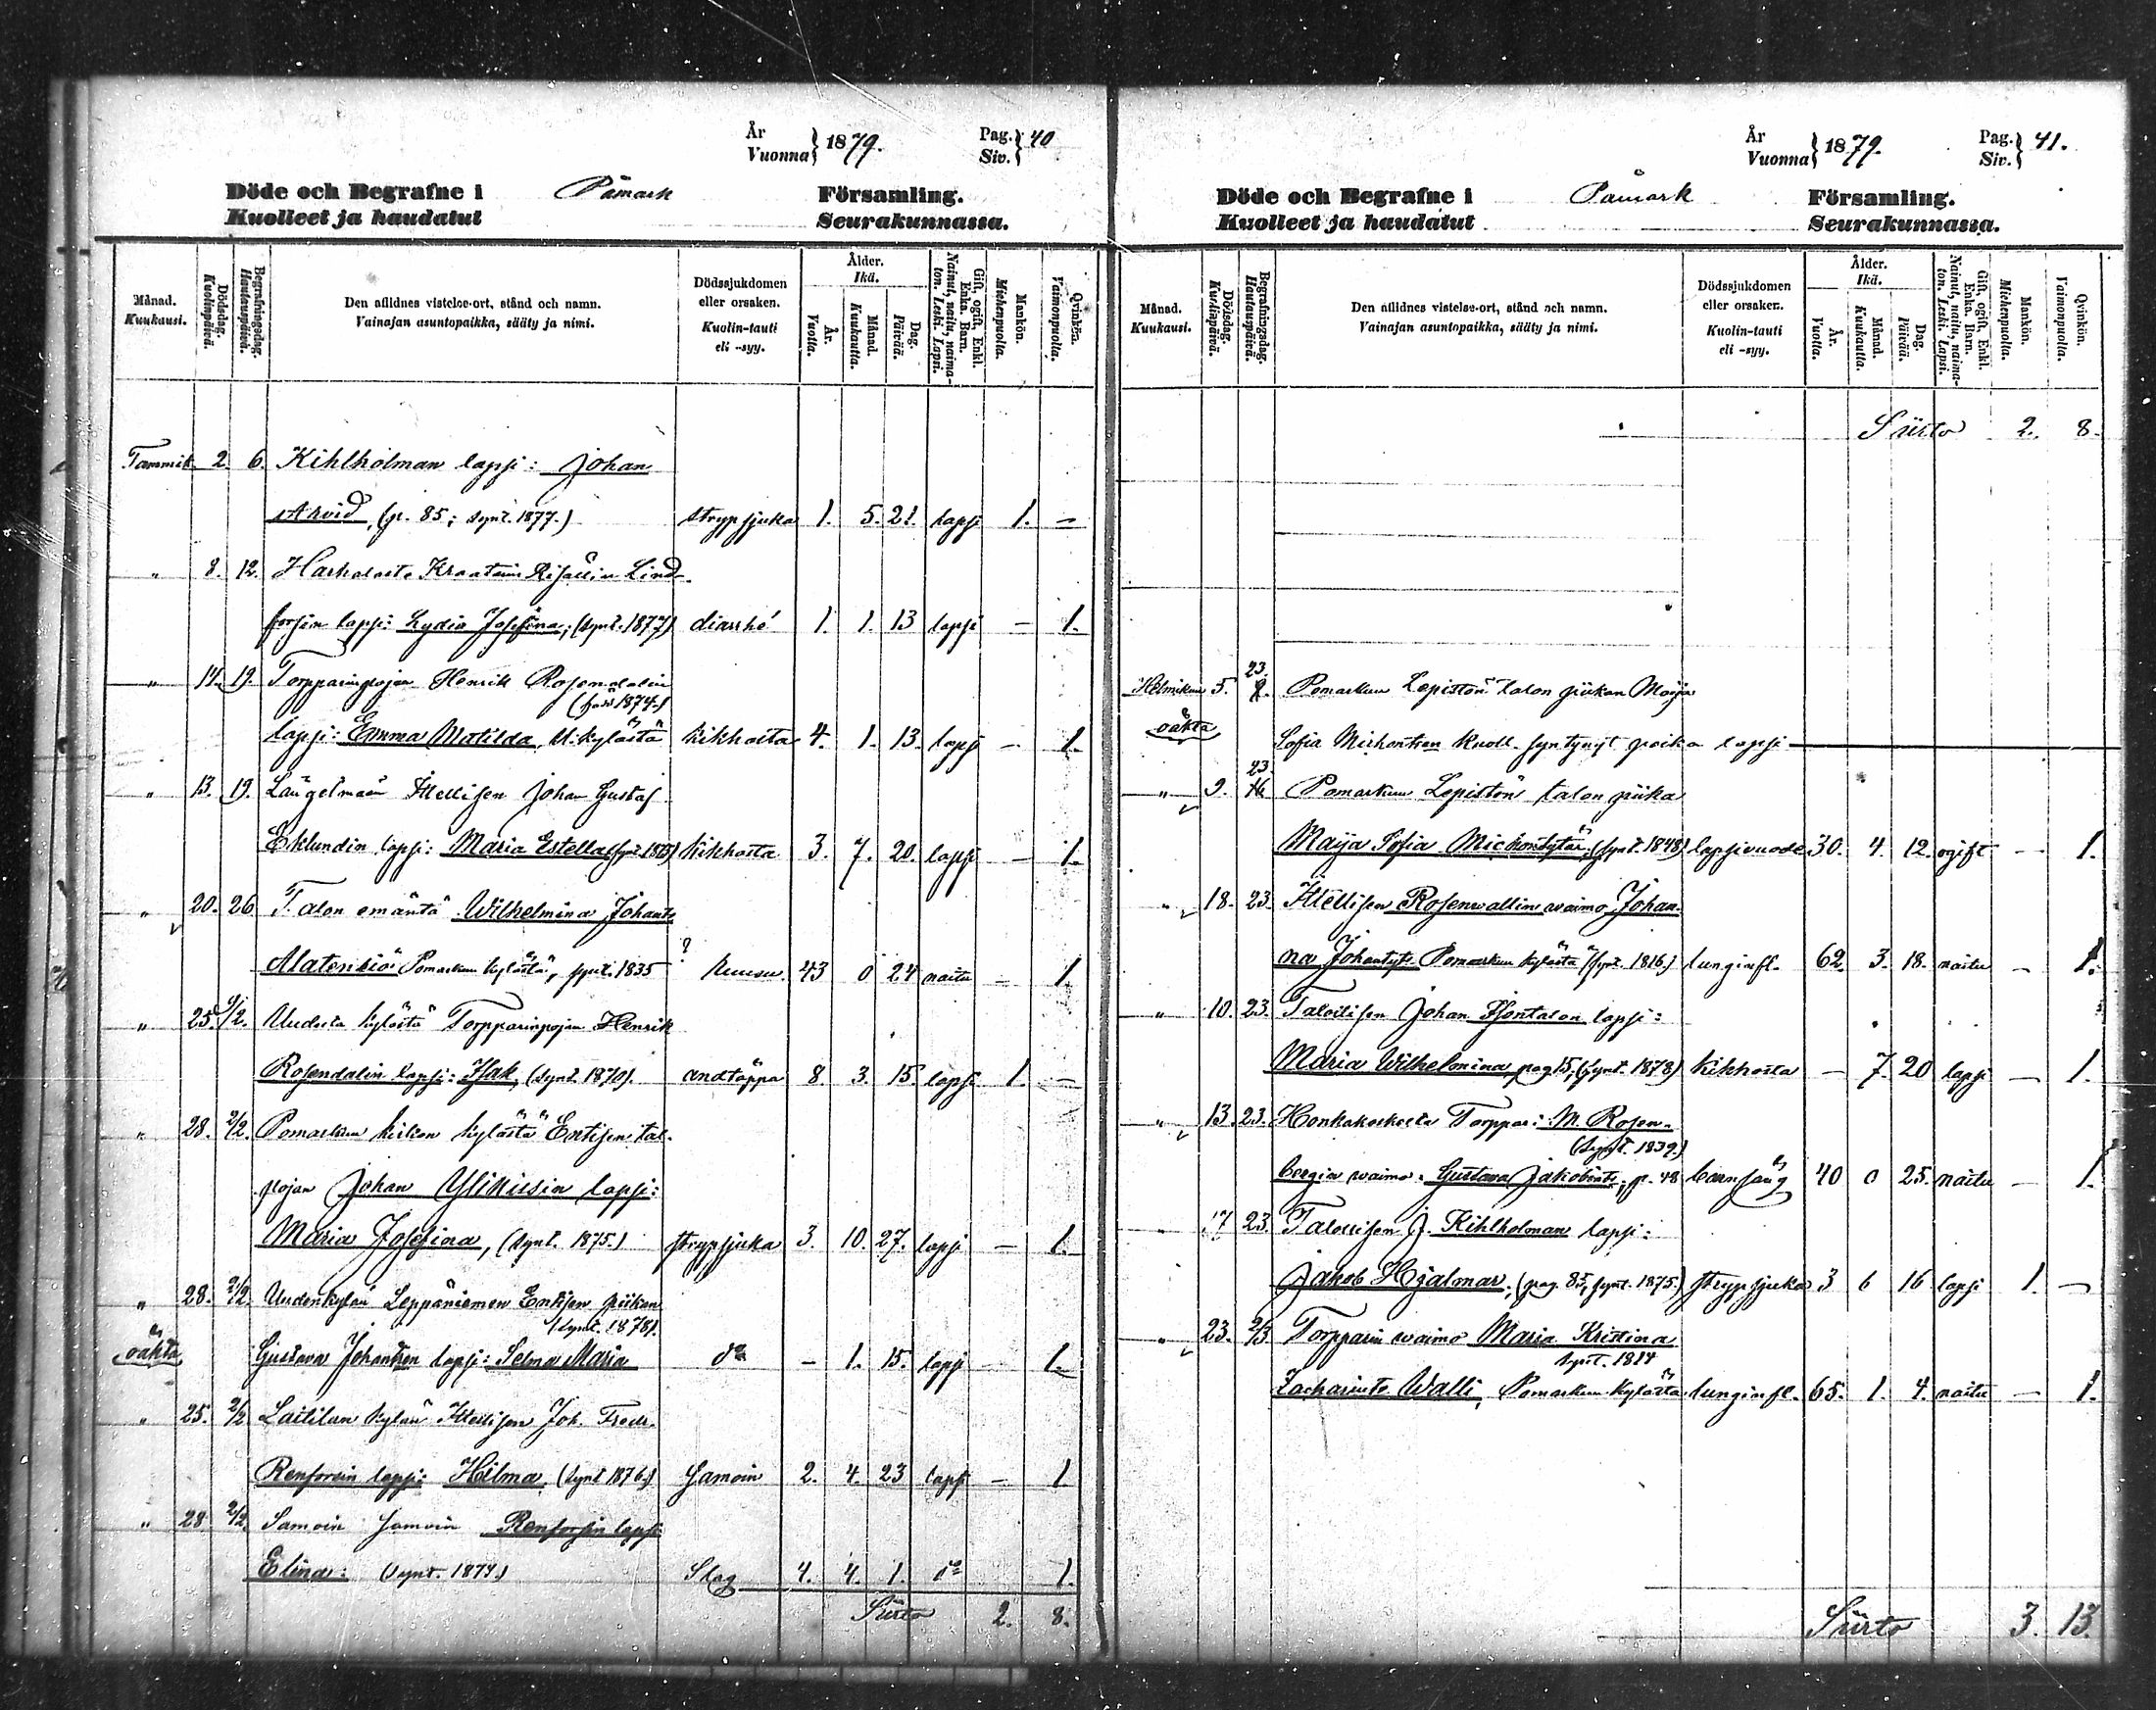 År
Vuonna } 1879.
Pag.
Siv. } 40
Döde och Begrafne i Påmark Församling.
Kuolleet ja haudatut Seurakunnassa.
Månad. Kuukausi.
Dödsdag. Kuolinpäivä.
Begrafningsdag. Hautauspäivä.
Den aflidnes vistelse-ort, stånd och namn.
Vainajan asuntopaikka, sääty ja nimi.
Dödssjukdomen eller orsaken.
Kuolin-tauti eli -syy.
Ålder. Ikä.
År. Vuotta.
Månad. Kuukautta.
Dag. Päivää.
Gift, ogift, Enkl. Enka. Barn.
Nainut, naitu, naimaton. Leski. Lapsi.
Mankön. Miehenpuolta.
Qvinkön. Vaimonpuolta.
Tammik. 2. 6. Kihlholman lapsi: Johan
Arvid, (p. 85; synt. 1877.) strypsjuka 1. 5. 21. lapsi 1. –
" 8. 12. Harhalasta Lind
forsin lapsi: Lydia Josefina; (synt. 1877) diarrhé 1. 1. 13 lapsi – 1.
" 14. 19. Torpparinpojan Henrik Rosendalin
1874.)
lapsi: Emma Matilda, U. kylästä kikhosta 4. 1. 13. lapsi – 1.
" 13. 19. Längelmään Itsellisen Johan Gustaf
Eklundin lapsi: Maria Estella (synt. 1875) kikhosta 3. 7. 20. lapsi – 1.
" 20. 26 Talon emäntä Wilhelmina Johant.
Alatenkiö Pomarkun kylästä, synt. 1835 ? kuusu 43 0 24 naitu – 1.
" 25. 9/2. Uudesta kylästä Torpparinpojan Henrik
Rosendalin lapsi: Isak, (synt. 1870). andtäppa 8. 3. 15. lapsi 1. –
" 28. 2/2. Pomarkun kirkon kylästä Entisen tal.
pojan Johan Ylinissin lapsi:
Maria Josefina, (synt. 1875.) strypsjuka 3. 10. 27. lapsi – 1.
" 28. 2/2. Uudenkylän Leppäniemen Entisen piikan
(synt. 1878).
oäkta Gustava Johantsen lapsi: Selma Maria d:o – 1. 15. lapsi – 1.
" 25. 2/2 Laitilan kylän Itsellisen Joh. Fredr.
Renforsin lapsi: Hilma (synt 1876.) Samoin 2. 4. 23 lapsi – 1
" 28. 2/2. Samoin samoin Renforsin lapsi
Elina: (synt. 1874.) Slag 4. 4. 1. d:o 1.
Siirto 2. 8.
År
Vuonna } 1879.
Pag.
Siv. } 41.
Döde och Begrafne i Påmark Församling.
Kuolleet ja haudatut Seurakunnassa.
Månad. Kuukausi.
Dödsdag. Kuolinpäivä.
Begrafningsdag. Hautauspäivä.
Den aflidnes vistelse-ort, stånd och namn.
Vainajan asuntopaikka, sääty ja nimi.
Dödssjukdomen eller orsaken.
Kuolin-tauti eli -syy.
Ålder. Ikä.
År. Vuotta.
Månad. Kuukautta.
Dag. Päivää.
Gift, ogift, Enkl. Enka. Barn.
Nainut, naitu, naimaton. Leski. Lapsi.
Mankön. Miehenpuolta.
Qvinkön. Vaimonpuolta.
Siirto 2. 8.
23.
Helmikuu 5. Pomarkun Lepistön talon piikan Maija
oäkta Sofia Michontsen kuoll. syntynyt poika lapsi
23.
" 9. 16 Pomarkun Lepistön talon piika
Maija Sofia Michontytär, (synt. 1848) lapsivuode 30. 4. 12. ogift – 1.
" 18. 23. Itsellisen Rosenwallin waimo Johan-
na Johantyt. Pomarkun kylästä (synt. 1816.) lunginfl. 62. 3. 18. naitu – 1.
" 10. 23. Talollisen Johan talon lapsi:
Maria Wilhelmina, pag 15, (synt. 1878) kikhosta – 7. 20 lapsi – 1.
" 13. 23. Honkakoskelta Torppari M. Rosen-
(synt. 1839.)
bergin waimo: Gustava Jakobint. p. 48 barnsäng 40 0 25. naitu – 1.
" 17 23. Talollisen J. Kihlholman lapsi:
Jakob Hjalmar, (pag. 85, synt. 1875.) strypsjuka 3 6 16 lapsi 1. –
" 23. 2/3 Torpparin waimo Maria Kristina
synt. 1814
Zachariint. Walli, Pomarkun kylästä lunginfl. 65. 1. 4. naitu – 1.
Siirto 3. 13.